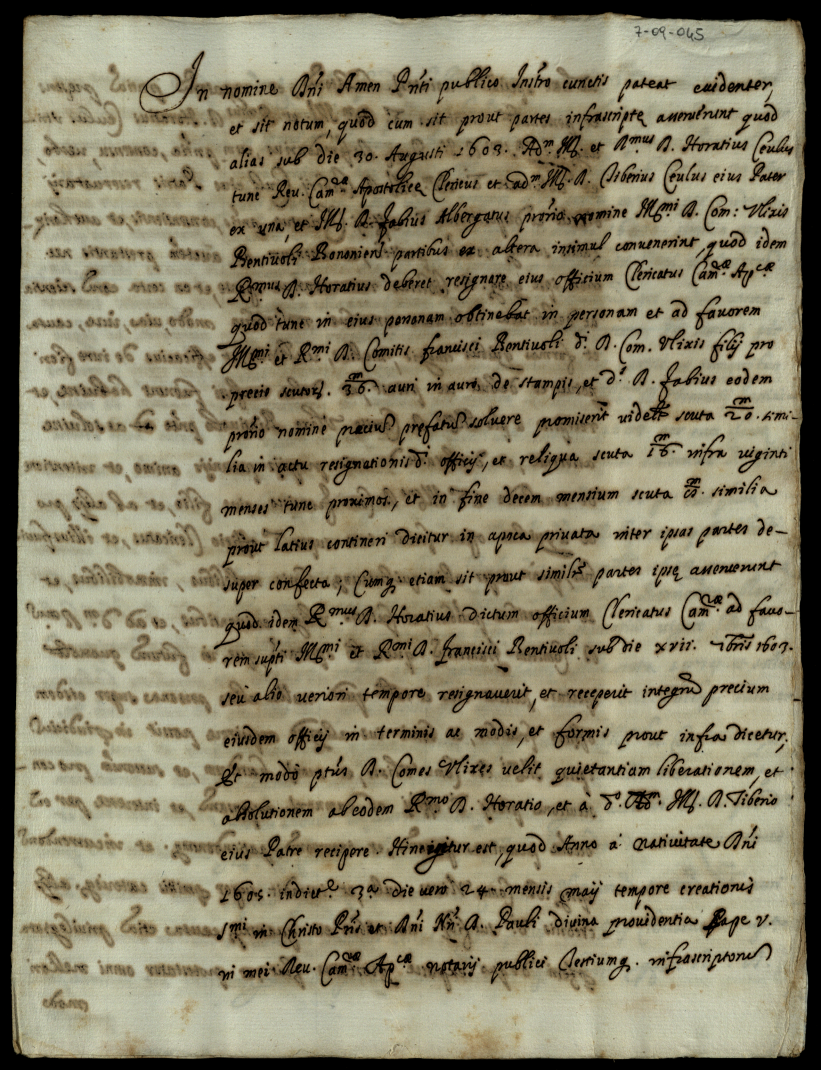 7-09-045
In nomine Dñi Amen Pñti publico Instro cunctis pateat euidenter,
et sit notum, quod cum sit prout partes infrascripte asseruerunt quod
alias sub die 30. Augusti 1603. Adm. Ill. et Rmus D. Horatius Ceulus
tunc Reu. Camræ Apostolice Clericus et adm. Ill. D. Tiberius Ceulus eius Pater
ex una, et Ill. D. Fabius Albergatus pro nomine Illmi D. Com: Vlixis
Bentiuoli Bononien partibus ex altera intimul conuenerint, quod idem
Rmus D. Horatius deberet resignare eius officium Clericatus Camræ Apcæ
quod tunc in eius personam obtinebat in personam et ad fauorem
Illmi et Rmi D. Comitis francisci Bentiuoli d. D. Com. Vlixis filij pro
precio scutor. 36. auri in auro, de stampis, et ds D. Fabius eodem
nomine precium prefatum soluere promiserit videlt scuta 20. simi-
lia in actu resignationis d. officij, et reliqua scuta 16. infra viginti
menses tunc proximos, et in fine decem mensium scuta similia
prout latius contineri dicitur in apoca priuata inter ipsas partes de-
super confecta; Cumq etiam sit prout similr partes ipse asseruerunt
quod idem Rmus D. Horatius dictum officium Clericatus Camræ ad fauo-
rem supti Illmi et Rmi D. Francisci Bentiuoli sub die xvii. 1603.
seu alio veriori tempore resignauerit, et receperit integru precium
eiusdem officij in terminis ac modis, et formis prout infra dicetur,
Et modo ptus D. Comes Vlixes velit quietantiam liberationem, et
absolutionem ab eodem Rmo D. Horatio, et à do. Adm. Ill. D. Tiberio
eius Patre recipere. Hinc igitur est, quod Anno à Natiuitate Dñi
1605. indicte 3a die vero 24 mensis maij tempore creationis
Smi in Christo Pris et Dñi Nri D. Pauli diuina prouidentia Pape V.
in mei Reu. Camræ Apcæ notarij publici Testiumq. infrascriptorum